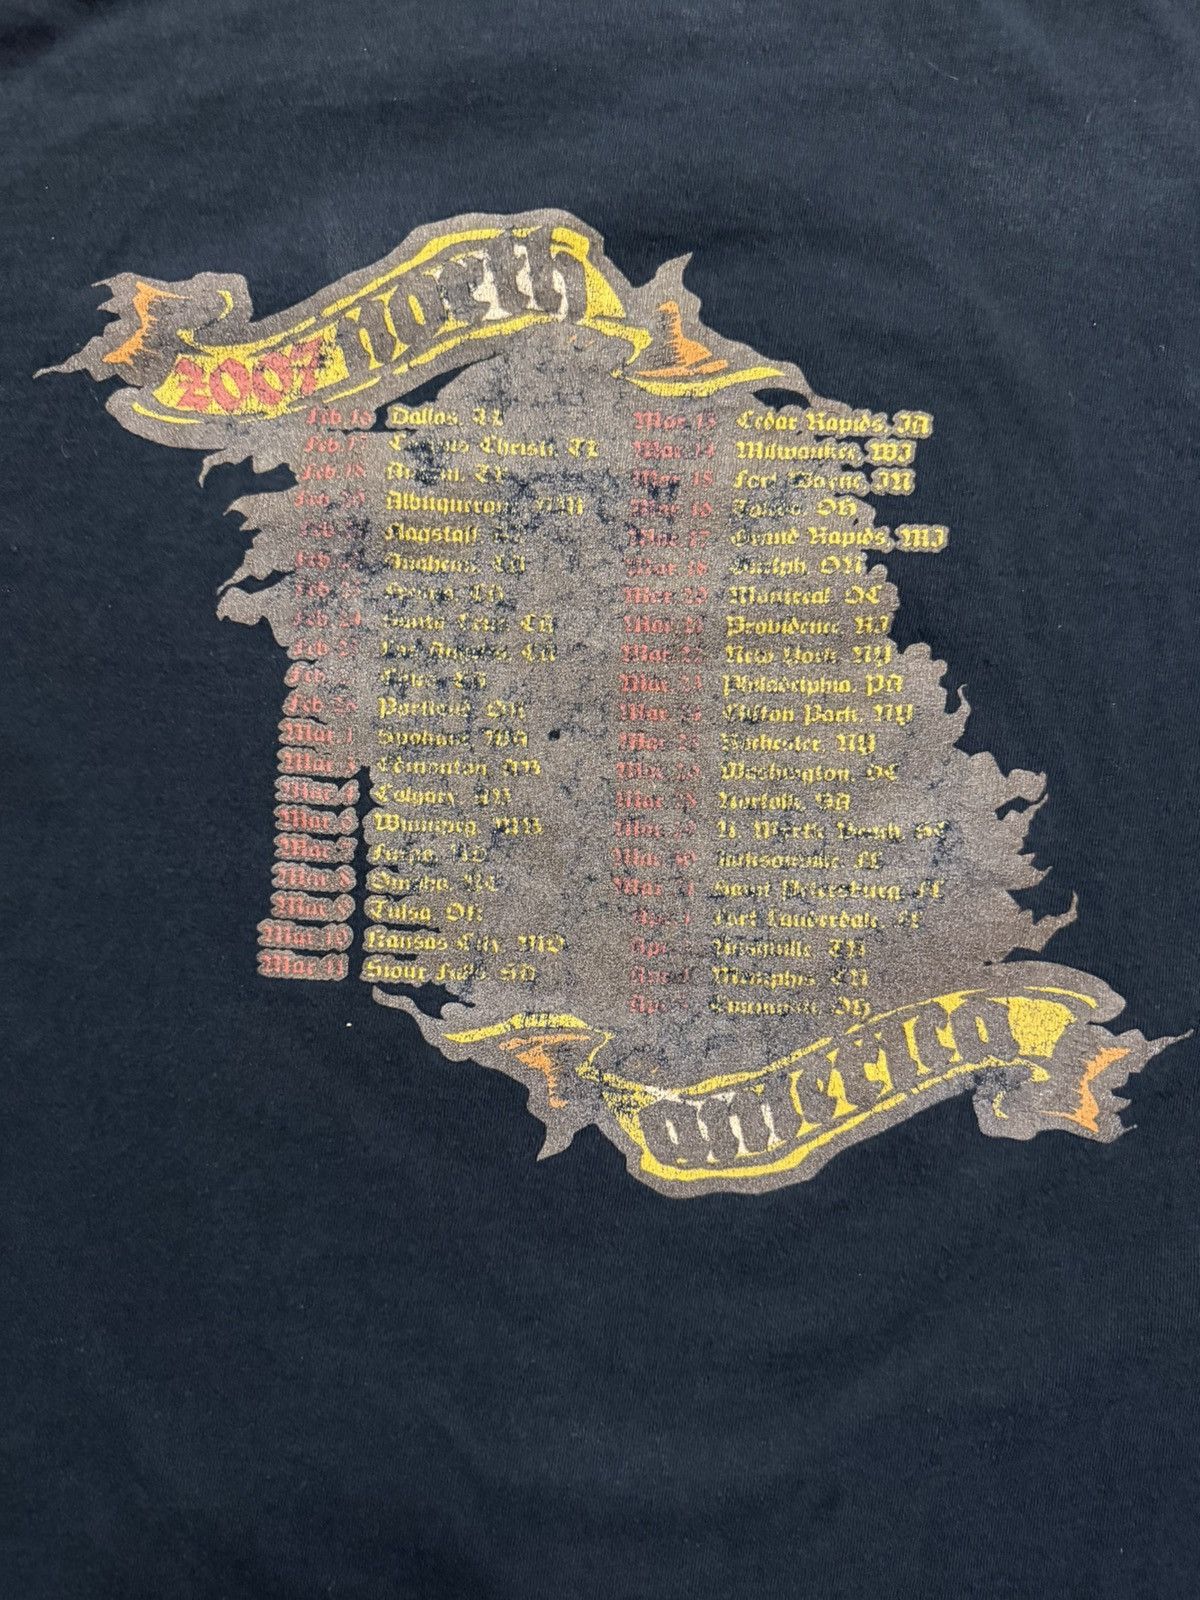 2007 North
Feb.16 Dallas, TX
Feb.17 Corpus Christi, TX
Feb.18 Austin, TX
Feb. Albuquerque, NM
Flagstaff,
Feb. Anaheim, CA
Feb. Fresno, CA
Feb. 24 Santa Cruz, CA
Feb. Los Angeles, CA
Feb.
Feb.28 Portland, OR
Mar.1 Spokane, WA
Mar.3 Edmonton, AB
Mar.4 Calgary, AB
Mar.6 Winnipeg, MB
Mar.7 Fargo, ND
Mar.8 Omaha, NE
Mar.9 Tulsa, OK
Mar.10 Kansas City, MO
Mar.11 Sioux Falls, SD
Mar.13 Cedar Rapids, IA
Mar.14 Milwaukee, WI
Mar.15 Fort Wayne, IN
Mar.16 OH
Mar.17 Grand Rapids, MI
Mar.18 Guelph, ON
Mar.20 Montreal, QC
Mar.21 Providence, RI
Mar.22 New York, NY
Mar.23 Philadelphia, PA
Mar. Clifton Park, NY
Mar. Rochester, NY
Mar. Washington, DC
Mar.28 Norfolk, VA
Mar.29 N. Myrtle Beach, SC
Mar.30 Jacksonville, FL
Mar.31 Saint Petersburg, FL
Apr.1 Fort Lauderdale, FL
Apr. Nashville, TN
Apr. Memphis, TN
Apr. Cincinnati, OH
America